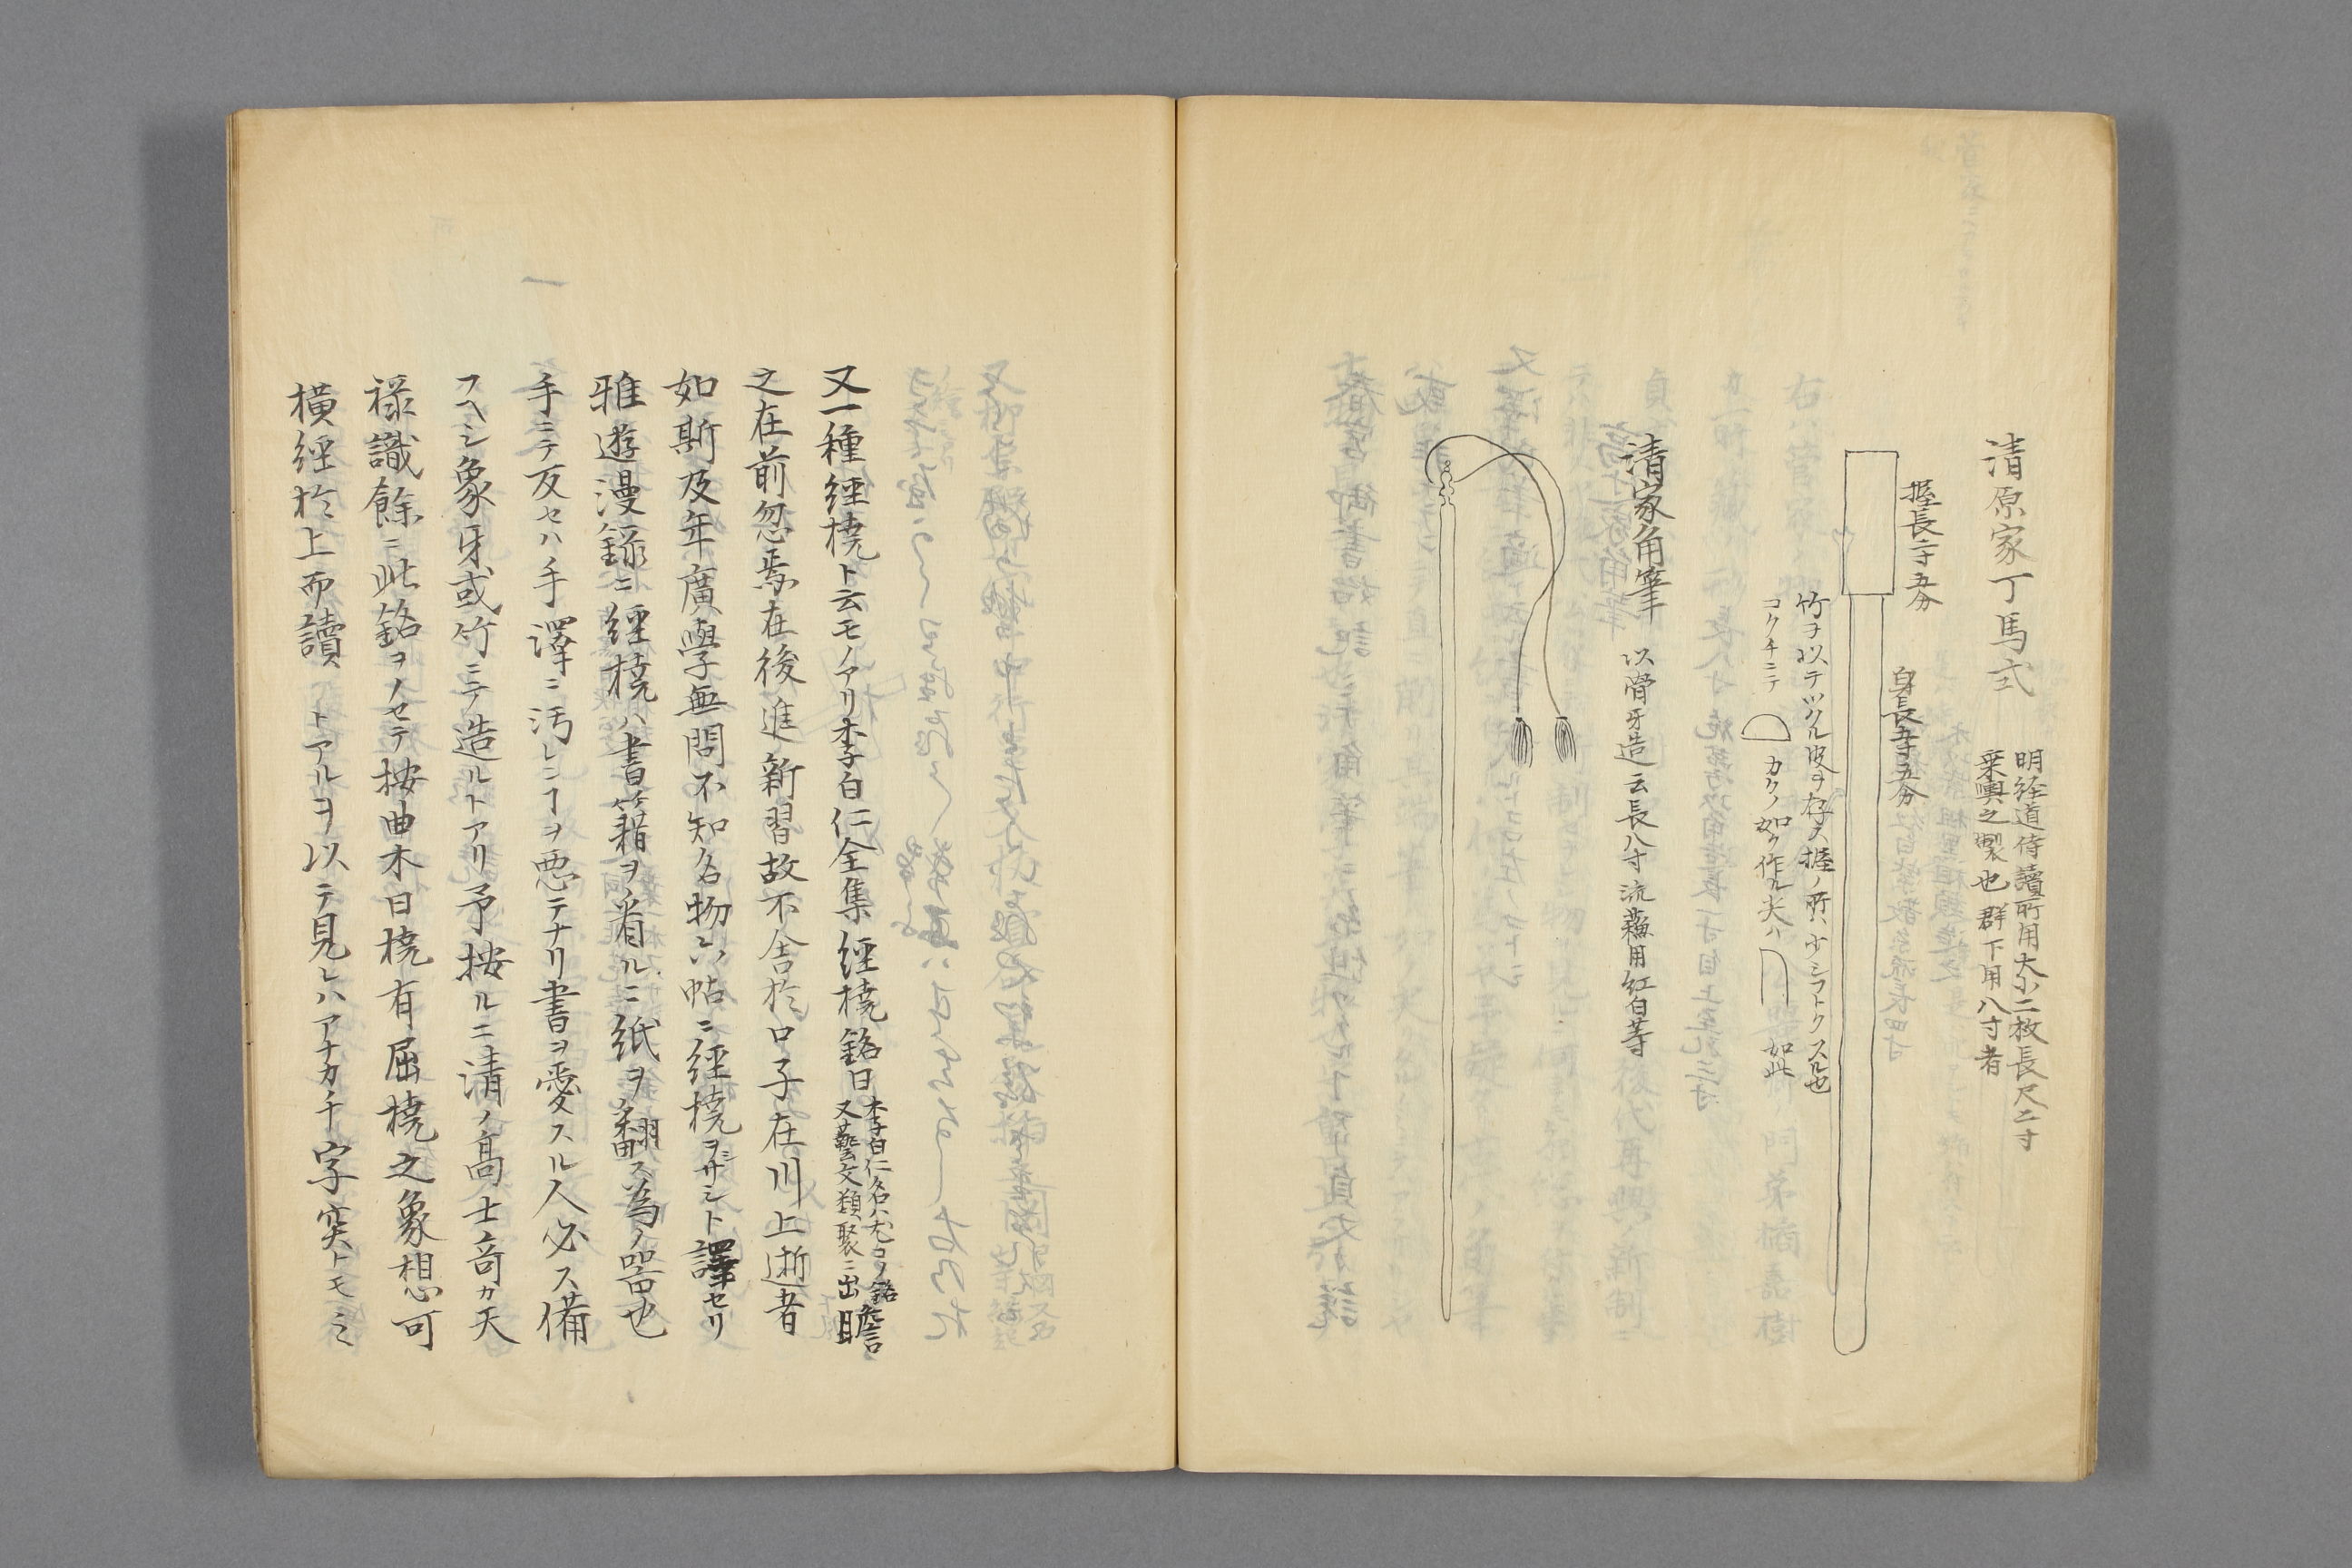 清原家丁馬式
明経道侍讀所用大小二枚長尺二寸
乗輿之製也群下用八寸者
握長二寸五分
身長五寸五分
竹ヲ以テツクル皮ヲ存ス握ノ所ハ少シフトクスル也
コクチニテ
カクノ如ク作ル尖ハ
如此
清家角筆
以骨牙造云長八寸流蘓用紅白等
又一種經橈ト云モノアリ李白仁全集經橈銘曰
李白仁名ハ尤コノ銘
又藝文類聚ニ出
瞻言
瞻
之在前忽焉在後進新習故不舎於口子在川上逝者
如斯及年廣學無問不知名物六帖ニ經橈ヲサシト譯セリ
雅遊漫録ニ經橈ハ書籍ヲ看ルニ紙ヲ飜ス為ノ噐也
手ニテ反セハ手澤ニ汚レンヿヲ悪テナリ書ヲ愛スル人必ス備
フヘシ象牙或竹ニテ造ルトアリ予按ルニ清ノ髙士竒カ天
禄識餘ニ此銘ヲノセテ按曲木曰橈有屈橈之象想可
横經於上而讀トアルヲ以テ見レハアナカチ字突トモミ